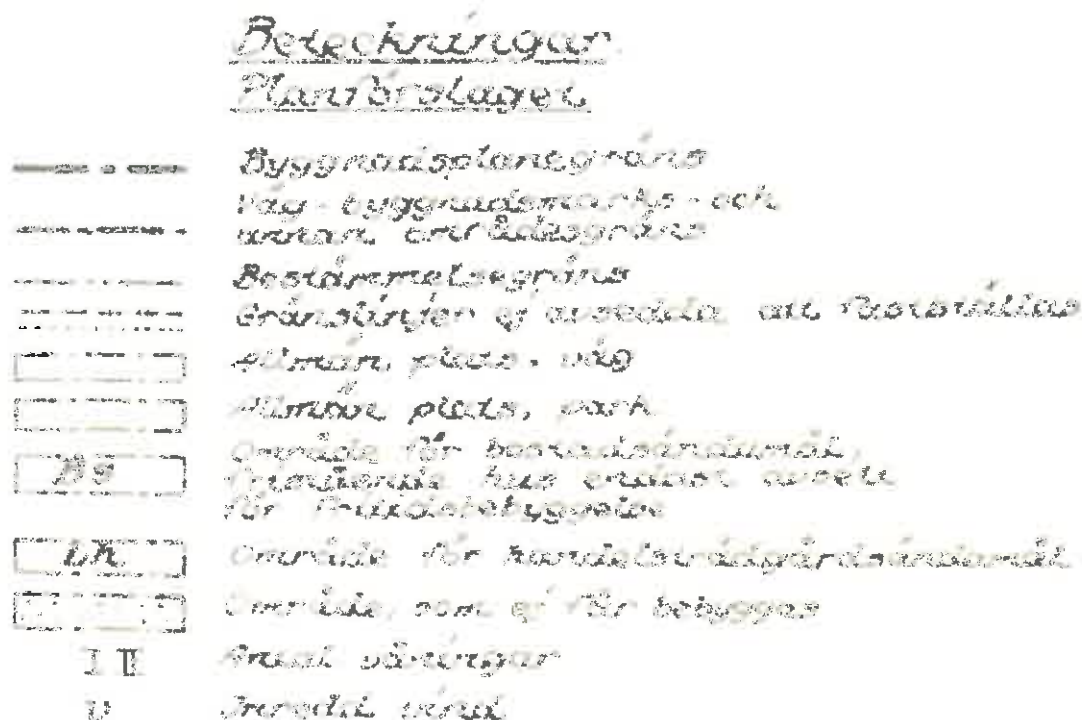 Beteckningar
Planförslaget
Byggnadsplanegräns
Väg- byggnadsmarks- och
annan områdesgräns
Bestämmelsegräns
Gränslinjer ej avsedda att fastställas
Allmän plats, väg
Allmän plats, park
Område för bostadsändamål,
hus endast
för fritidsbebyggelse
Område för
Område som ej får bebyggas
I II Antal våningar
v Inredd vind